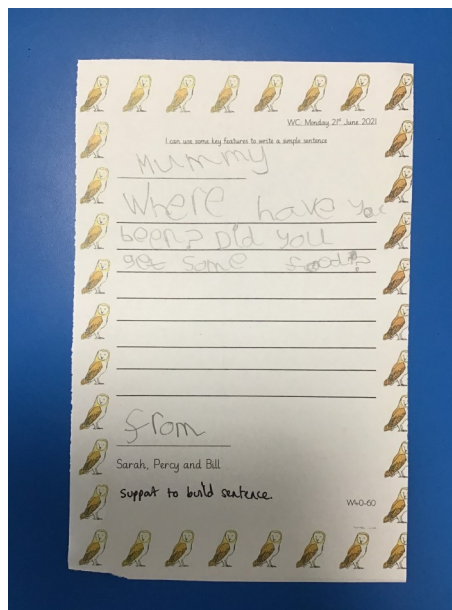 WC: Monday 21st June 2021
I can use some key features to write a simple sentence
Mummy
Where have you
been? Did you
get some food?
from
Sarah, Percy and Bill
support to build sentence.
W40-60